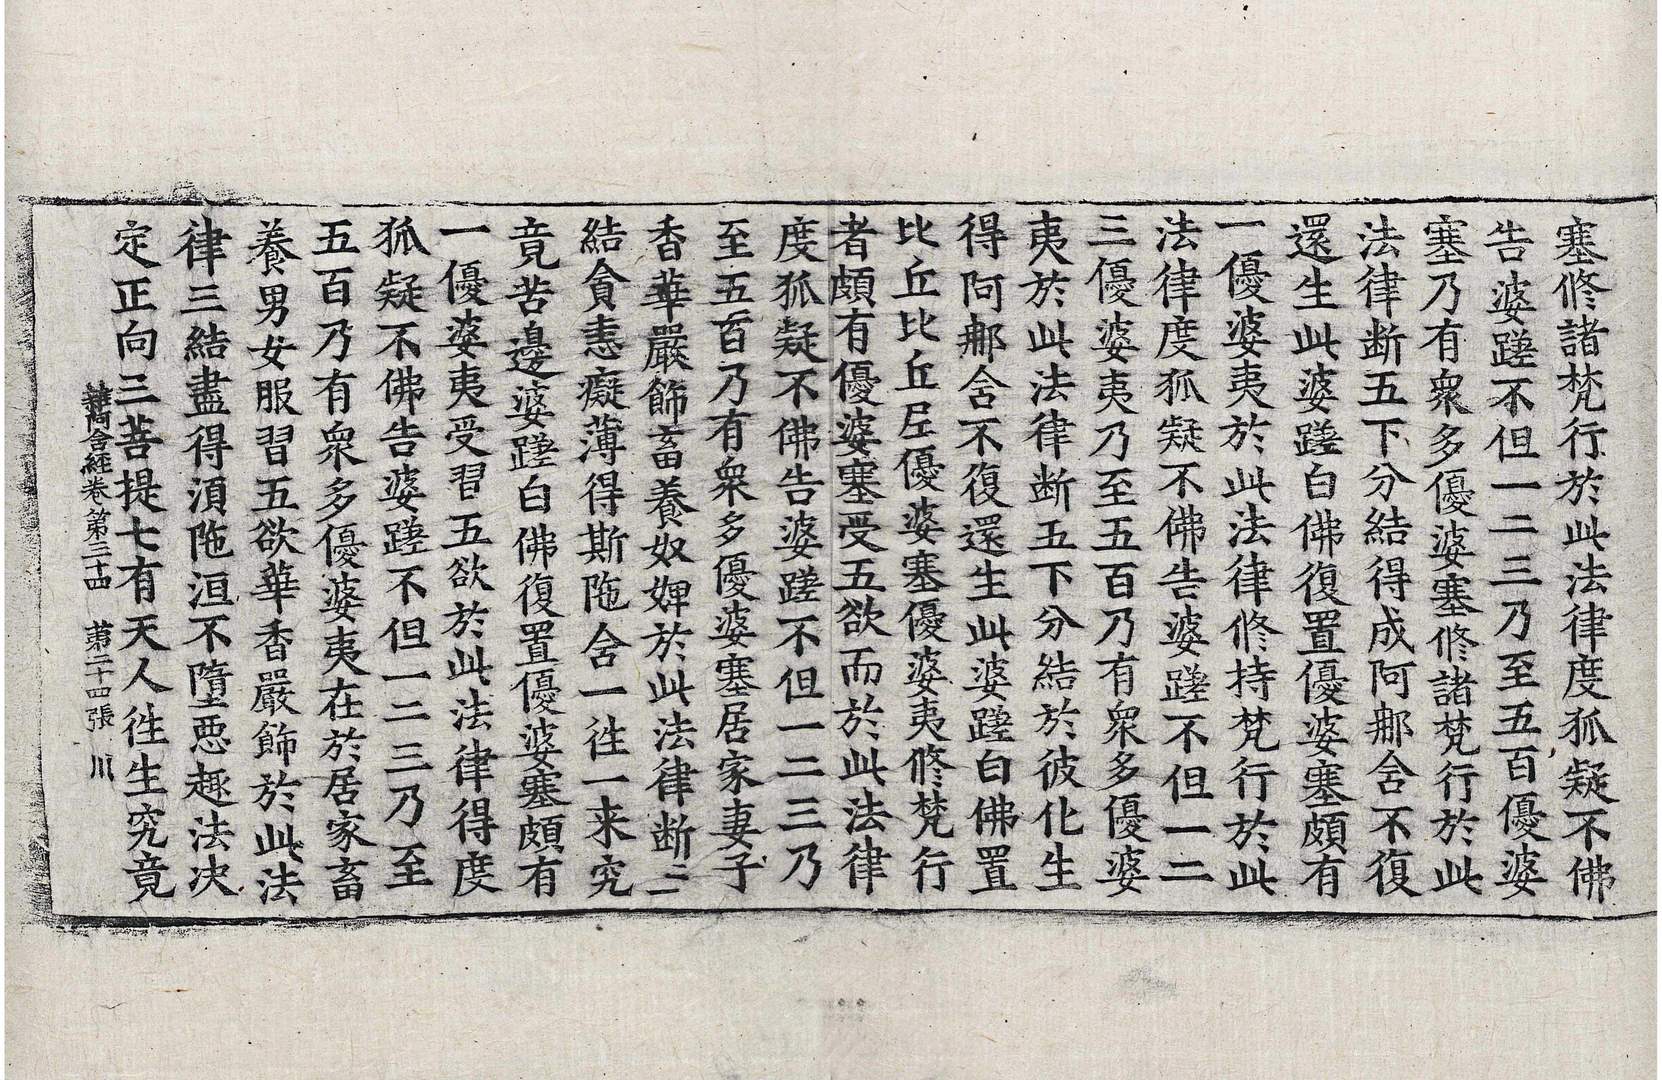 塞修諸梵行於此法律度狐疑不佛
告婆蹉不但一二三乃至五百優婆
塞乃有衆多優婆塞修諸梵行於此
法律断五下分結得成阿那含不復
還生此婆蹉白佛復置優婆塞頗有
一優婆夷於此法律修持梵行於此
法律度狐疑不佛告婆蹉不但一二
三優婆夷乃至五百乃有衆多優婆
夷於此法律断五下分結於彼化生
得阿那含不復還生此婆蹉白佛置
比丘比丘尼優婆塞優婆夷修梵行
者頗有優婆塞受五欲而於此法律
度狐疑不佛告婆蹉不但一二三乃
至五百乃有衆多優婆塞居家妻子
香華嚴飾畜養奴婢於此法律断三
結貪恚癡薄得斯陁含一徃一来究
竟苦邊婆蹉白佛復置優婆塞頗有
一優婆夷受習五欲於此法律得度
狐疑不佛告婆蹉不但一二三乃至
五百乃有衆多優婆夷在於居家畜
養男女服習五欲華香嚴飾於此法
律三結盡得湏陁洹不墮惡趣法决
定正向三菩提七有天人徃生究竟
雜阿含經卷第三十四 第二十四張 川